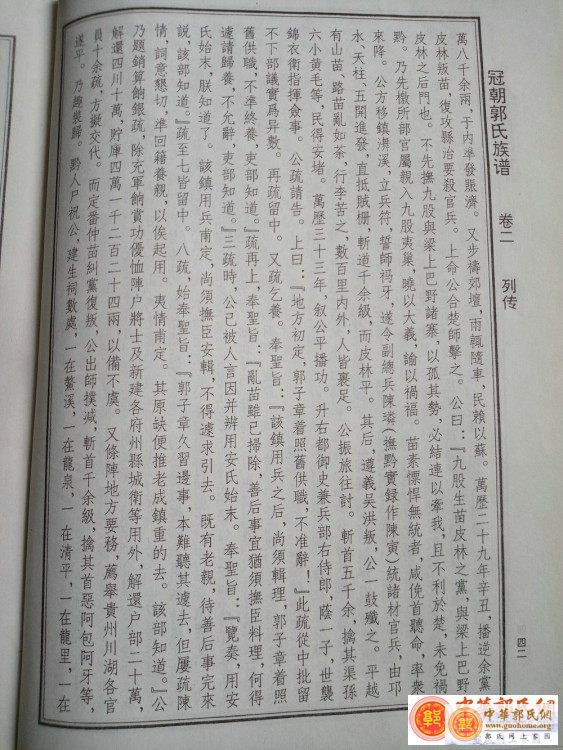 冠朝郭氏族谱 卷二 列传 四二
萬八千余兩，于內準發賑濟。又步禱郊壇，雨輒隨車，民賴以蘇。萬歷二十九年辛丑，播逆余黨
皮林叛苗，復攻縣治要殺官兵。上命公合楚師擊之。公曰：『九股生苗皮林之黨，與梁上巴野
皮林之后門也。不先撫九股與梁上巴野諸寨，以孤其勢，必結連以牽我，且不利於楚，未免禍
黔。乃先檄所部官屬親入九股夷巢，曉以大義，諭以禍福。苗素慓悍無統者，咸俛首聽命，率衆
來降。公方移鎮濆溪，立兵符，誓師祃牙，遂令副總兵陳璘（撫黔實録作陳寅）統諸材官兵，由邛
水、天柱、五開進發，直抵賊栅，斬道千余級，而皮林平。其后，遵義吴洪叛，公一鼓殲之。平越
有山苗、路苗亂如荼，行李苦之，數百里内外，人皆裹足。公振旅往討。斬首五千余，擒其渠孫
六小黄毛等，民得安堵。萬歷三十三年，叙公平播功。升右都御史兼兵部右侍郎，蔭一子，世襲
錦衣衛指揮僉事。公疏請告。上曰：『地方初定，郭子章着照舊供職，不准辭！』此疏從中批留
不下部議實爲异數。再疏留中。又疏乞養。奉聖旨：『該鎮用兵之后，尚須輯理，郭子章着照
舊供職，不準終養，吏部知道。』疏再上，奉聖旨：『亂苗雖已掃除，善后事宜猶須撫臣料理，何得
遽請歸養，不允辭，吏部知道。』三疏時，公已被人言因并辨用安氏始末。奉聖旨：『覽奏，用安
氏始末，朕知道了。該鎮用兵甫定，尚須撫臣安輯，不得遽求引去。既有老親，待善后事完來
説，該部知道。』疏至七皆留中。八疏，始奉聖旨：『郭子章久習邊事，本難聽其遽去，但屢疏陳
情，詞意懇切，準回籍養親，以俟起用。夷情甫定。其原缺便推老成鎮重的去。該部知道。』公
乃題銷算餉銀疏，除充軍餉賞功優恤陣户將士及新建各府州縣城衛等用外，解還户部二十萬，
解還四川十萬，貯庫四萬一千二百二十四兩，以備不虞。又條陳地方要務，薦舉貴州川湖各官
員十余疏，方擬交代。而定番仲苗糾黨復叛，公出師撲滅，斬首千余級，擒其首惡阿包阿牙等，
遂平。乃趣裝歸。黔人尸祝公，建生祠數處，一在鰲溪，一在龍泉，一在清平，一在龍里，一在
中華郭氏網
www.guohome.org
郭氏网上家園